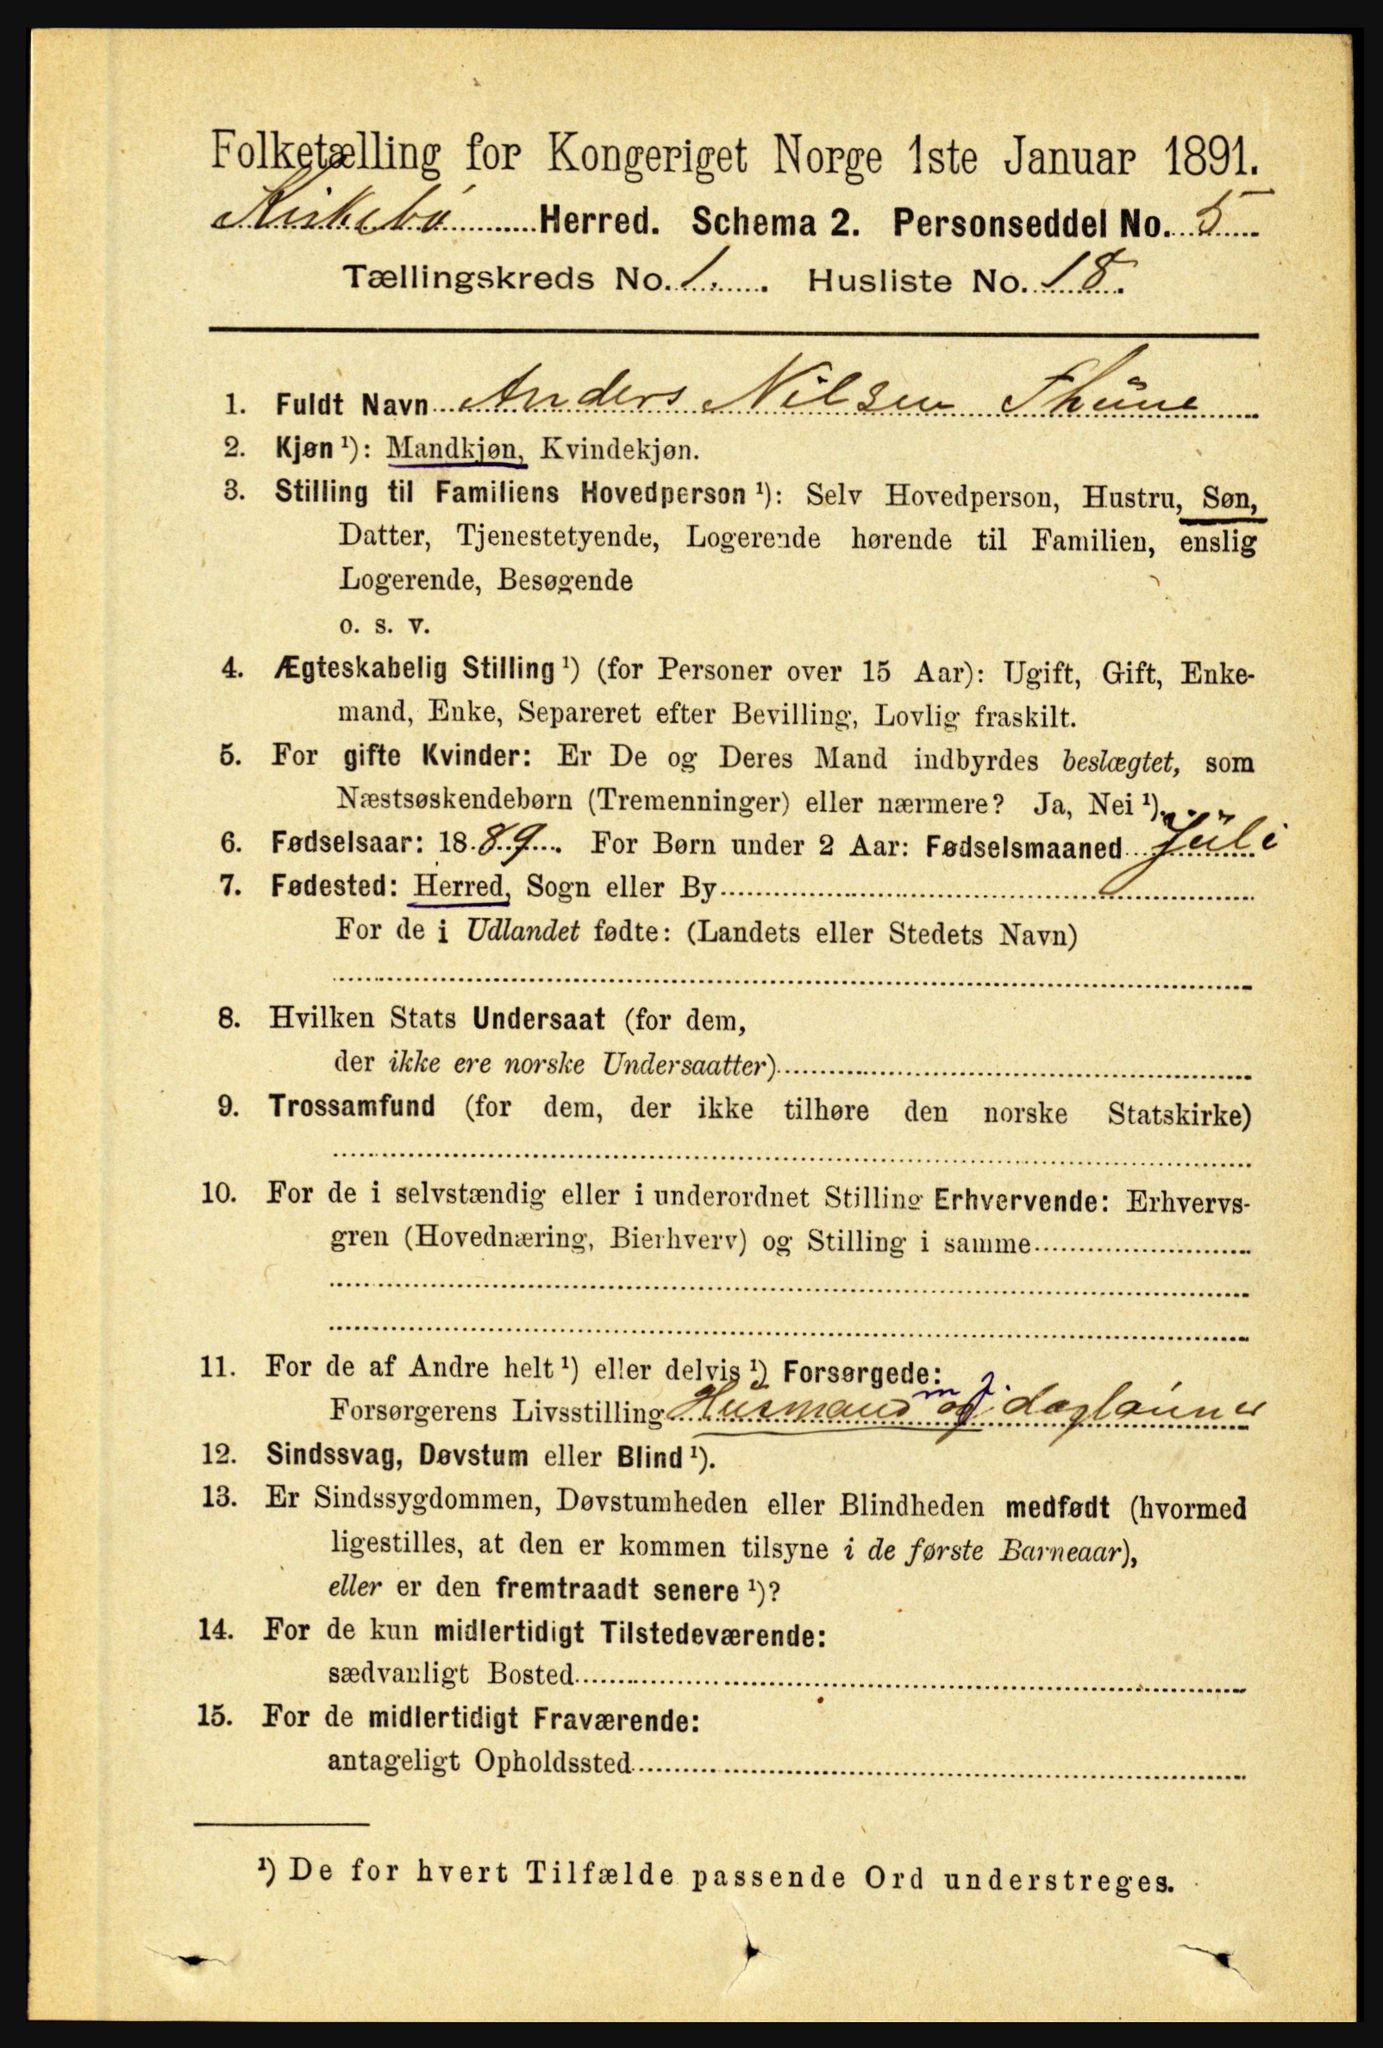 Folketælling for Kongeriget Norge 1ste Januar 1891.
Kirkebø Herred. Schema 2. Personseddel No. 5
Tællingskreds No. 1. Husliste No. 18.
1. Fuldt Navn Anders Nilsen Thüne
2. Kjøn ¹): Mandkjøn, Kvindekjøn.
3. Stilling til Familiens Hovedperson ¹): Selv Hovedperson, Hustru, Søn,
Datter, Tjenestetyende, Logerende hørende til Familien, enslig
Logerende, Besøgende
o. s. v.
4. Ægteskabelig Stilling ¹) (for Personer over 15 Aar): Ugift, Gift, Enke-
mand, Enke, Separeret efter Bevilling, Lovlig fraskilt.
5. For gifte Kvinder: Er De og Deres Mand indbyrdes beslægtet, som
Næstsøskendebørn (Tremenninger) eller nærmere? Ja, Nei ¹).
6. Fødselsaar: 1889. For Børn under 2 Aar: Fødselsmaaned Jüli
7. Fødested: Herred, Sogn eller By
For de i Udlandet fødte: (Landets eller Stedets Navn)
8. Hvilken Stats Undersaat (for dem,
der ikke ere norske Undersaatter)
9. Trossamfund (for dem, der ikke tilhøre den norske Statskirke)
10. For de i selvstændig eller i underordnet Stilling Erhvervende: Erhvervs-
gren (Hovednæring, Bierhverv) og Stilling i samme
11. For de af Andre helt ¹) eller delvis ¹) Forsørgede:
Forsørgerens Livsstilling Hüsmand m j. og dagløüner
12. Sindssvag, Døvstum eller Blind ¹).
13. Er Sindssygdommen, Døvstumheden eller Blindheden medfødt (hvormed
ligestilles, at den er kommen tilsyne i de første Barneaar),
eller er den fremtraadt senere ¹)?
14. For de kun midlertidigt Tilstedeværende:
sædvanligt Bosted
15. For de midlertidigt Fraværende:
antageligt Opholdssted
¹) De for hvert Tilfælde passende Ord understreges.